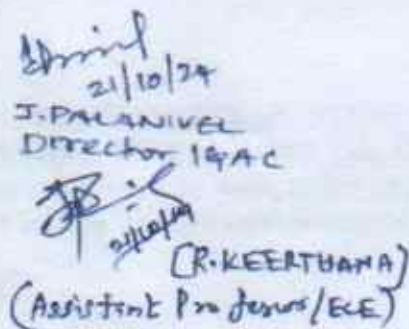 21/10/24
J. PALANIVEL
Director IQAC
21/10/24
[R. KEERTHANA]
(Assistant Professor/ECE)